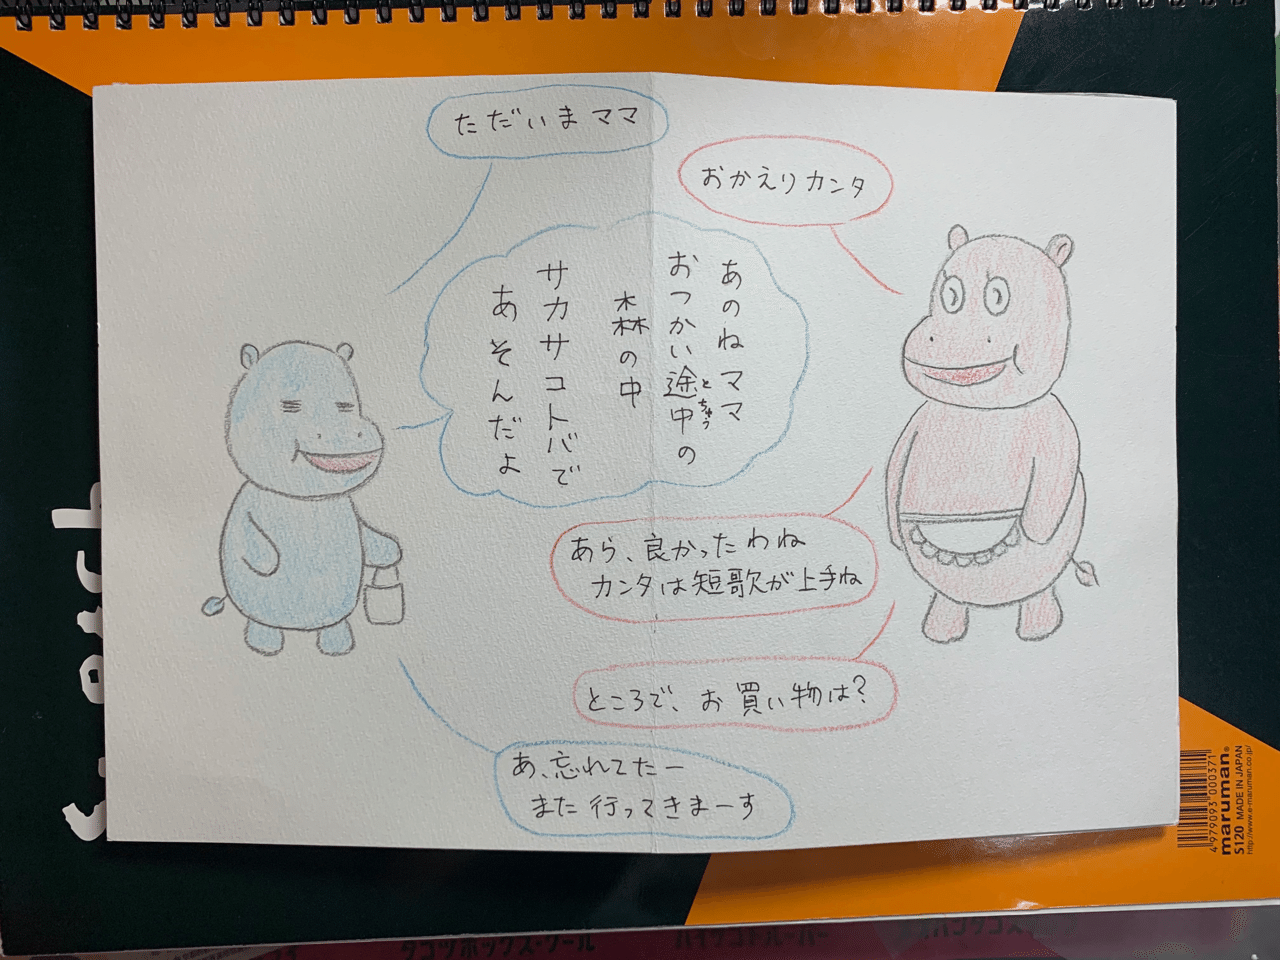 ただいまママ
おかえりカンタ
あのねママ
おつかい途中の
とちゅう
森の中
サカサコトバで
あそんだよ
あら、良かったわね
カンタは短歌が上手ね
ところで、お買い物は?
あ、忘れてたー
また行ってきまーす
4979093000371
maruman®
S120 MADE IN JAPAN
http://www.e-maruman.co.jp/